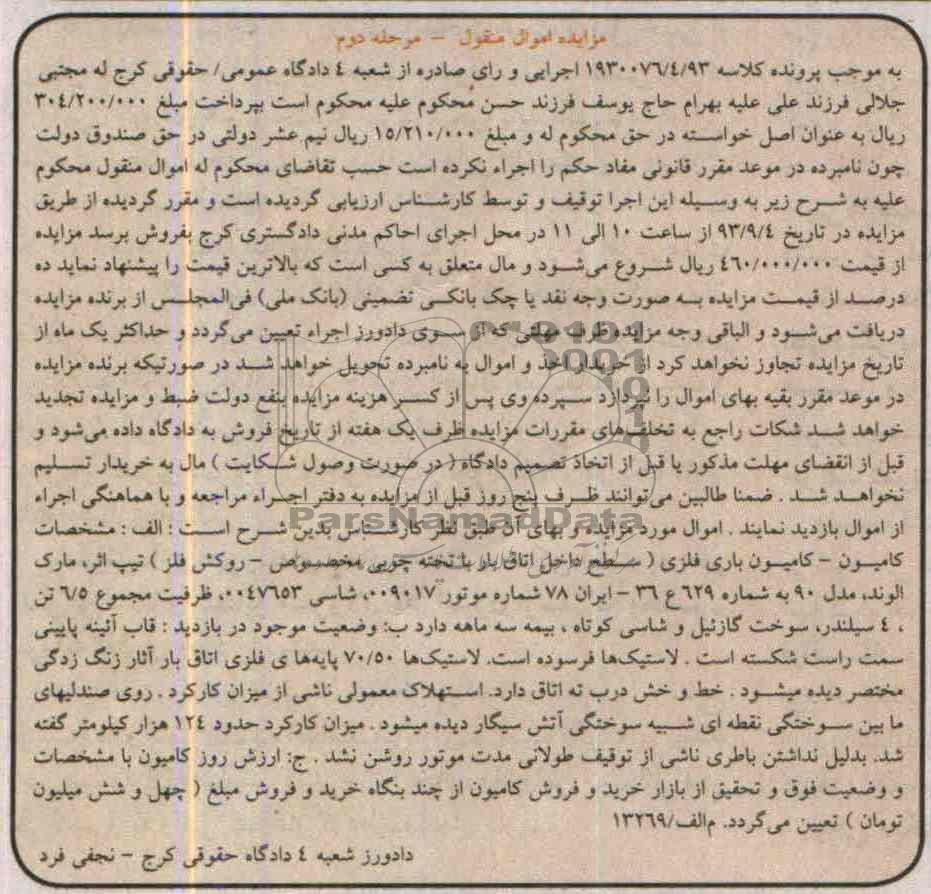 مزایده اموال منقول - مرحله دوم
به موجب پرونده کلاسه ۱۹۳۰۰۷۶/٤/۹۳ اجرایی و رای صادره از شعبه ٤ دادگاه عمومی/ حقوقی کرج له مجتبی
جلالی فرزند علی علیه بهرام حاج یوسف فرزند حسن محکوم علیه محکوم است بپرداخت مبلغ ۳۰٤/۲۰۰/۰۰۰
ریال به عنوان اصل خواسته در حق محکوم له و مبلغ ۱۵/۲۱۰/۰۰۰ ریال نیم عشر دولتی در حق صندوق دولت
چون نامبرده در موعد مقرر قانونی مفاد حکم را اجراء نکرده است حسب تقاضای محکوم له اموال منقول محکوم
علیه به شرح زیر به وسیله این اجرا توقیف و توسط کارشناس ارزیابی گردیده است و مقرر گردیده از طریق
مزایده در تاریخ ۹۳/۹/٤ از ساعت ۱۰ الی ۱۱ در محل اجرای احاکم مدنی دادگستری کرج بفروش برسد مزایده
از قیمت ٤٦۰/۰۰۰/۰۰۰ ریال شروع می‌شود و مال متعلق به کسی است که بالاترین قیمت را پیشنهاد نماید ده
درصد از قیمت مزایده به صورت وجه نقد یا چک بانکی تضمینی (بانک ملی) فی‌المجلس از برنده مزایده
دریافت می‌شود و الباقی وجه مزایده ظرف مهلتی که از سوی دادورز اجراء تعیین می‌گردد و حداکثر یک ماه از
تاریخ مزایده تجاوز نخواهد کرد از خریدار اخذ و اموال به نامبرده تحویل خواهد شد در صورتیکه برنده مزایده
در موعد مقرر بقیه بهای اموال را نپردازد سپرده وی پس از کسر هزینه مزایده بنفع دولت ضبط و مزایده تجدید
خواهد شد شکات راجع به تخلف‌های مقررات مزایده ظرف یک هفته از تاریخ فروش به دادگاه داده می‌شود و
قبل از انقضای مهلت مذکور یا قبل از اتخاذ تصمیم دادگاه ( در صورت وصول شکایت ) مال به خریدار تسلیم
نخواهد شد . ضمنا طالبین می‌توانند ظرف پنج روز قبل از مزایده به دفتر اجراء مراجعه و با هماهنگی اجراء
از اموال بازدید نمایند . اموال مورد مزایده و بهای آن طبق نظر کارشناس بدین شرح است : الف : مشخصات
کامیون - کامیون باری فلزی ( سطح داخل اتاق بار با تخته چوبی مخصوص - روکش فلز ) تیپ اثر، مارک
الوند، مدل ۹۰ به شماره ٦۲۹ ع ۳٦ - ایران ۷۸ شماره موتور ۰۰۹۰۱۷، شاسی ۰۰٤۷٦۵۳، ظرفیت مجموع ٦/۵ تن
، ٤ سیلندر، سوخت گازئیل و شاسی کوتاه ، بیمه سه ماهه دارد ب: وضعیت موجود در بازدید : قاب آئینه پایینی
سمت راست شکسته است . لاستیک‌ها فرسوده است. لاستیک‌ها ۷۰/۵۰ پایه‌ها ی فلزی اتاق بار آثار زنگ زدگی
مختصر دیده میشود . خط و خش درب ته اتاق دارد. استهلاک معمولی ناشی از میزان کارکرد . روی صندلیهای
ما بین سوختگی نقطه ای شبیه سوختگی آتش سیگار دیده میشود . میزان کارکرد حدود ۱۲٤ هزار کیلومتر گفته
شد. بدلیل نداشتن باطری ناشی از توقیف طولانی مدت موتور روشن نشد . ج: ارزش روز کامیون با مشخصات
و وضعیت فوق و تحقیق از بازار خرید و فروش کامیون از چند بنگاه خرید و فروش مبلغ ( چهل و شش میلیون
تومان ) تعیین می‌گردد. م/الف/۱۳۲٦۹
دادورز شعبه ٤ دادگاه حقوقی کرج - نجفی فرد
ParsNamadData